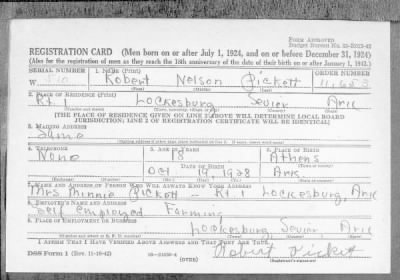 FORM APPROVED
Budget Bureau No. 33-R013-42
REGISTRATION CARD (Men born on or after July 1, 1924, and on or before December 31, 1924)
(Also for the registration of men as they reach the 18th anniversary of the date of their birth on or after January 1, 1943.)
SERIAL NUMBER 1. NAME (Print) ORDER NUMBER
W Robert Nelson Pickett
(First) (Middle) (Last)
2. PLACE OF RESIDENCE (Print)
Rt 1 Lockesburg Sevier Ark
[THE PLACE OF RESIDENCE GIVEN ON LINE 2 ABOVE WILL DETERMINE LOCAL BOARD
JURISDICTION; LINE 2 OF REGISTRATION CERTIFICATE WILL BE IDENTICAL]
3. MAILING ADDRESS
Same
4. TELEPHONE 5. AGE IN YEARS 6. PLACE OF BIRTH
None 18 Athens
DATE OF BIRTH
Oct 19, 1928 Ark
7. NAME AND ADDRESS OF PERSON WHO WILL ALWAYS KNOW YOUR ADDRESS
Mrs. Minnie Pickett - Rt 1 Lockesburg, Ark
8. EMPLOYER'S NAME AND ADDRESS
Self Employed Farming
9. PLACE OF EMPLOYMENT OR BUSINESS
Lockesburg, Sevier Ark
I AFFIRM THAT I HAVE VERIFIED ABOVE ANSWERS AND THAT THEY ARE TRUE.
DSS Form 1 (Rev. 11-16-42)
(OVER)
Robert Pickett